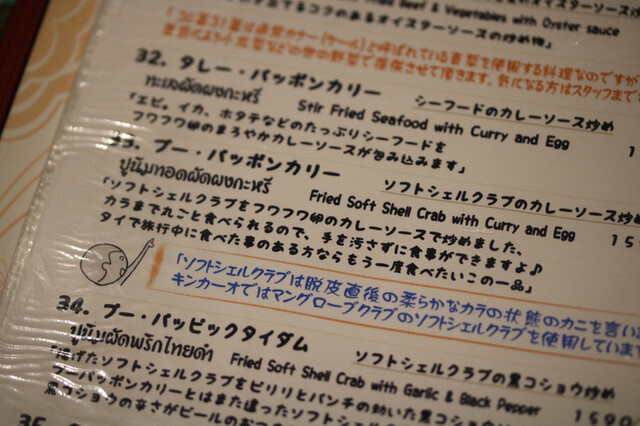 Fried Beef & Vegetables with Oyster sauce
てるコクのあるオイスターソースの炒め物」
されている青菜を使用する料理なのですが
の野菜で提供させて頂きます。気になる方はスタッフまで
32. タレー・パッポンカリー シーフードのカレーソース炒め
ทะเลผัดผงกะหรี่ Stir Fried Seafood with Curry and Egg 1
「エビ。イカ、ホタテなどのたっぷりシーフードを
フワフワ卵のまろやかカレーソースが包み込みます」
33. プー・パッポンカリー ソフトシェルクラブのカレーソース炒
ปูนิ่มทอดผัดผงกะหรี่ Fried Soft Shell Crab with Curry and Egg 15
「ソフトシェルクラブをフワフワ卵のカレーソースで炒めました、
カラまで丸ごと食べられるので、手を汚さずに食事ができますよ♪
タイで旅行中に食べた事のある方ならもう一度食べたいこの一品」
「ソフトシェルクラブは脱皮直後の柔らかなカラの状態のカニを言い
キンカーオではマングローブクラブのソフトシェルクラブを使用していま
34. プー・パッピックタイダム ソフトシェルクラブの黒コショウ炒め
ปูนิ่มผัดพริกไทยดำ Fried Soft Shell Crab with Garlic & Black Pepper 1590
げたソフトシェルクラブをピリリとパンチの効いた黒コショウ
プーパッポンカリーとはまた違ったソフトシェル
黒コショウの辛さがビールのお
35